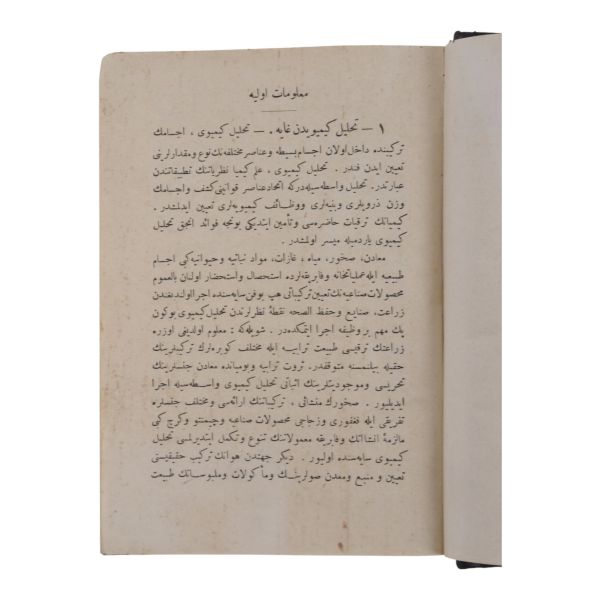 معلومات اولیه
١ — تحلیل کیمیویدن غایه . — تحلیل کیمیوی ، اجسامك
ترکیبنده داخل اولان اجسام بسیطه و عناصر مختلفه نك نوع و مقدارلرینی
تعیین ایدن فندر . تحلیل کیمیوی ، علم کیمیا نظریاتنك تطبیقاتندن
عبارتدر. تحلیل واسطه سیله درکه اتحاد عناصر قوانینی کشف و اجسامك
وزن ذرویلری وبنیه لری ووظائف کیمیویه لری تعیین ایدلمشدر .
کیمیانك ترقیات حاضره سی و تأمین ایتدیکی بونجه فوائد انجق تحلیل
کیمیوی یاردمیله میسر اولمشدر .
معادن، صخور، میاه ، غازات، مواد نباتیه و حیوانیه کبی اجسام
طبیعیه ایله عملیاتخانه وفابریقه لرده استحصال واستحضار اولنان بالعموم
محصولات صناعیه نك تعیین ترکیباتی هپ بوفن سایه سنده اجرا اولندیغندن
زراعت، صنایع و حفظ الصحه نقطۀ نظرلرندن تحلیل کیمیوی بوکون
پك مهم بر وظیفه اجرا ایتمکده در . شویله که : معلوم اولدیغی اوزره
زراعتك ترقیسی طبیعت ترابیه ایله مختلف کوبره لرك ترکیبلرینك
حقیله بیلنمسنه متوقفدر. ثروت ترابیه و بومیانده معادن جنسلرینك
تحریسی و موجودیتلرینك اثباتی تحلیل کیمیوی واسطه سیله اجرا
ایدیلیور . صخورك منشائی ، ترکیباتنك ارائه سی و مختلف جنسلره
تفریقی ایله فغفوری و زجاجی محصولات صناعیه و چیمنتو و کرچ کبی
مالزمۀ انشائاتك و فابریقه معمولاتنك تنوع و تکمل ایتدیرلمسی تحلیل
کیمیوی سایه سنده اولیور . دیکر جهتدن هوانك ترکیب حقیقیسنی
تعیین و منبع و معدن صولرینك و مأکولات و ملبوساتك طبیعت